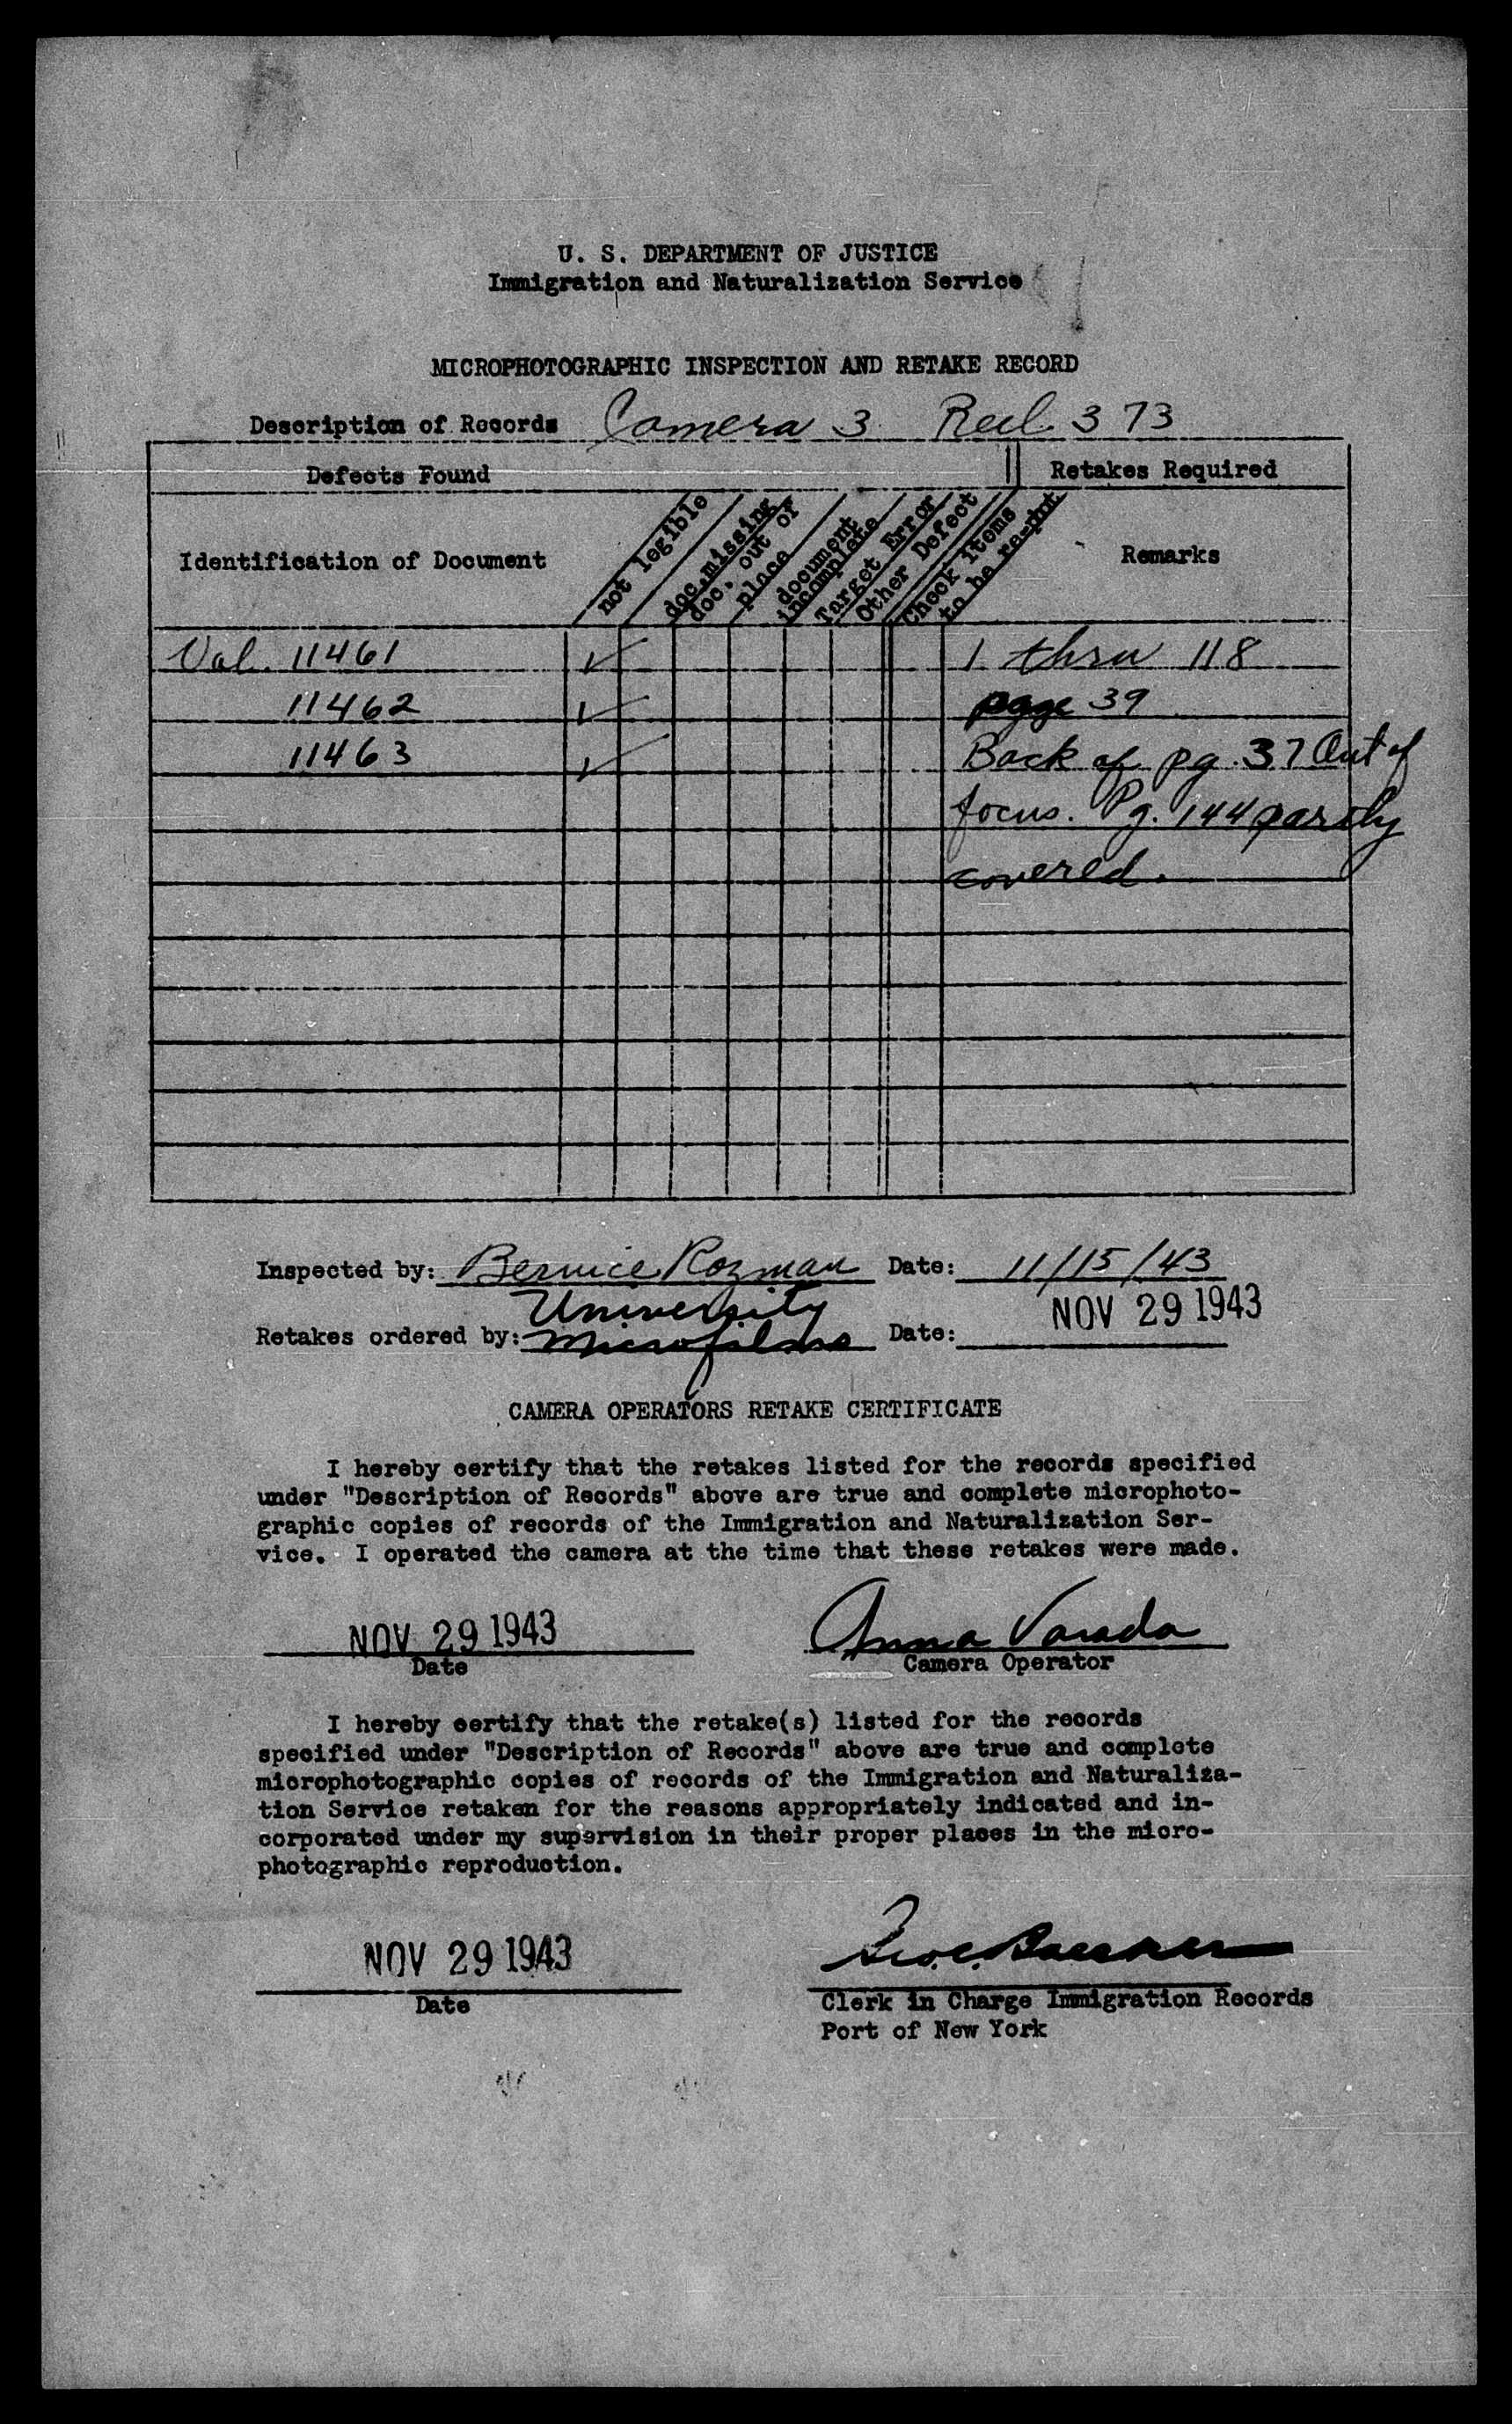 U. S. DEPARTMENT OF JUSTICE
Immigration and Naturalization Service
MICROPHOTOGRAPHIC INSPECTION AND RETAKE RECORD
Description of Records Camera 3 Reel 373
Defects Found Retakes Required
Identification of Document
not legible
doc. missing
doc. out of
place
document
incomplete
Target Error
Other Defect
Check items
to be re-pht
Remarks
Vol. 11461 ✓ 1 thru 118
11462 ✓ page 39
11463 ✓ Back of pg. 37 Out of
focus. Pg. 144 partly
covered.
Inspected by: Bernice Rozman Date: 11/15/43
University
Retakes ordered by: Microfilms Date: NOV 29 1943
CAMERA OPERATORS RETAKE CERTIFICATE
I hereby certify that the retakes listed for the records specified
under "Description of Records" above are true and complete microphoto-
graphic copies of records of the Immigration and Naturalization Ser-
vice. I operated the camera at the time that these retakes were made.
NOV 29 1943 Anna Varada
Date Camera Operator
I hereby certify that the retake(s) listed for the records
specified under "Description of Records" above are true and complete
microphotographic copies of records of the Immigration and Naturaliza-
tion Service retaken for the reasons appropriately indicated and in-
corporated under my supervision in their proper places in the micro-
photographic reproduction.
NOV 29 1943
Date Clerk in Charge Immigration Records
Port of New York